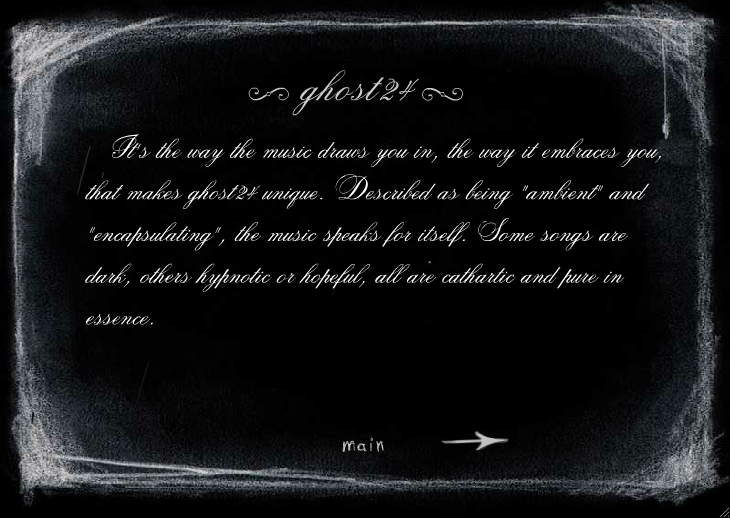 ghost24
It's the way the music draws you in, the way it embraces you,
that makes ghost24 unique. Described as being "ambient" and
"encapsulating", the music speaks for itself. Some songs are
dark, others hypnotic or hopeful, all are cathartic and pure in
essence.
main